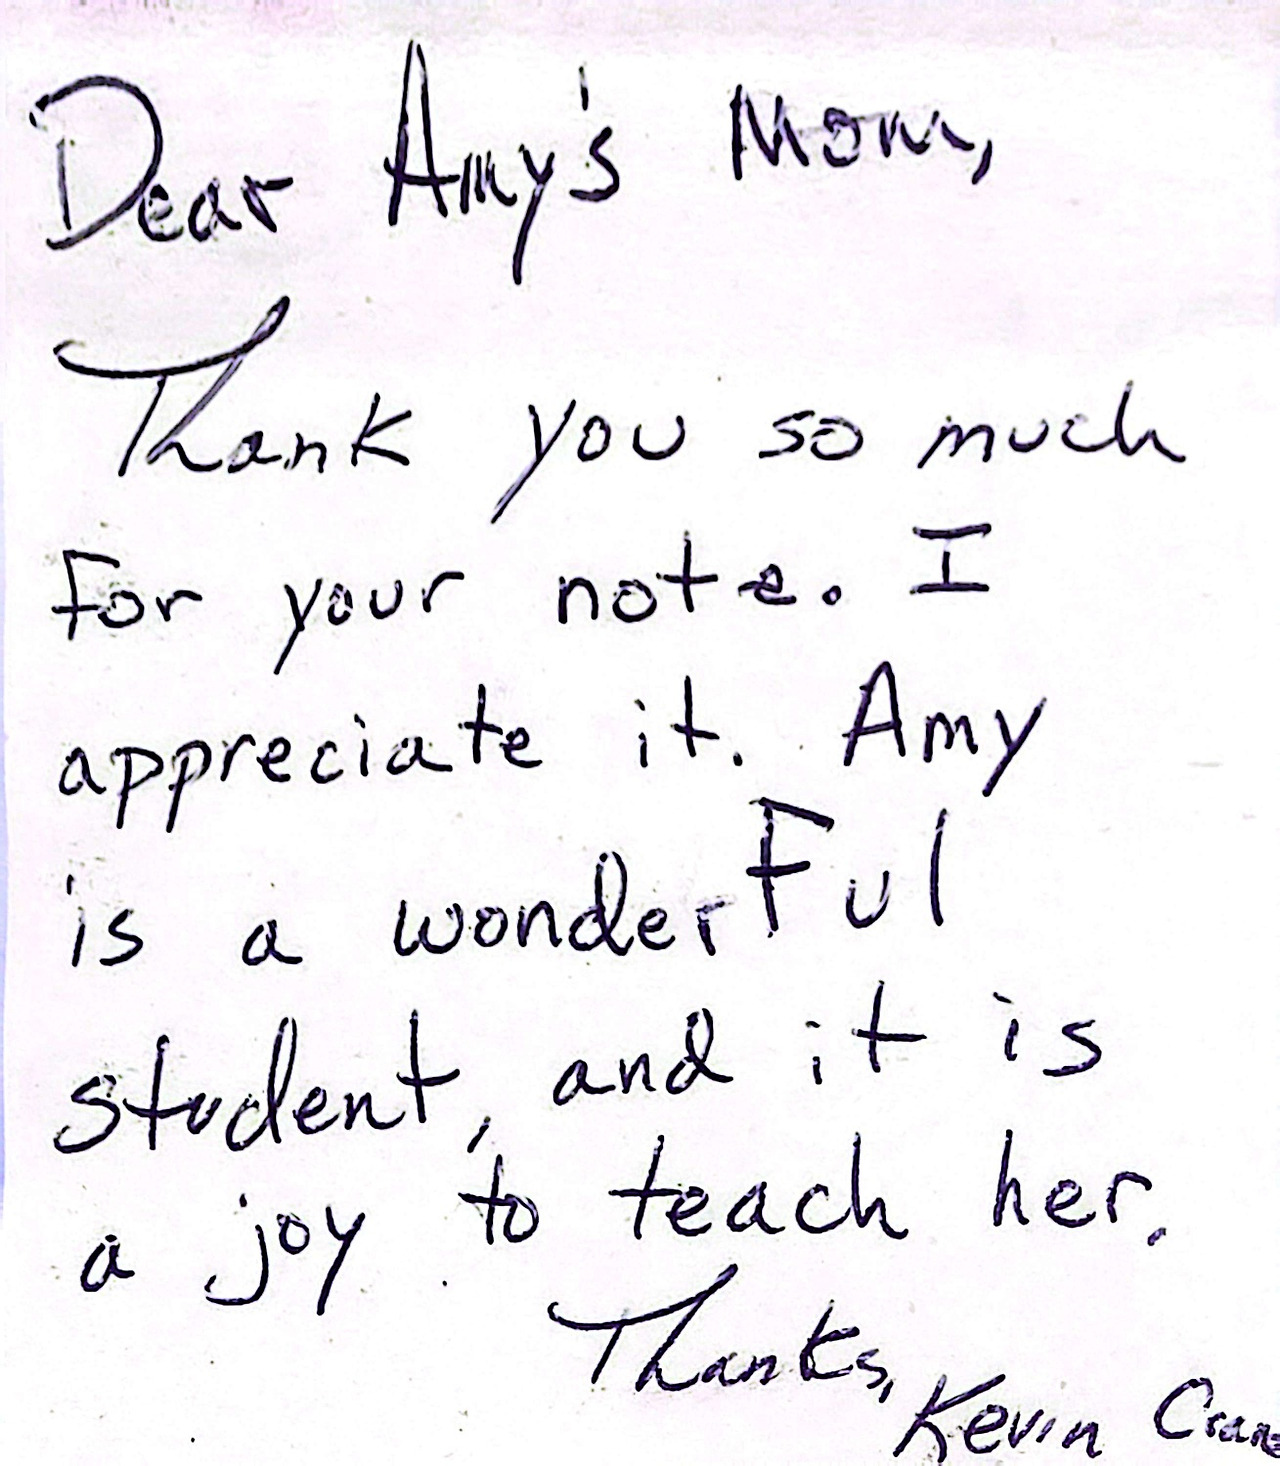 Dear Amy's Mom,
Thank you so much
for your note. I
appreciate it. Amy
is a wonderful
student, and it is
a joy to teach her.
Thanks,
Kevin Crane